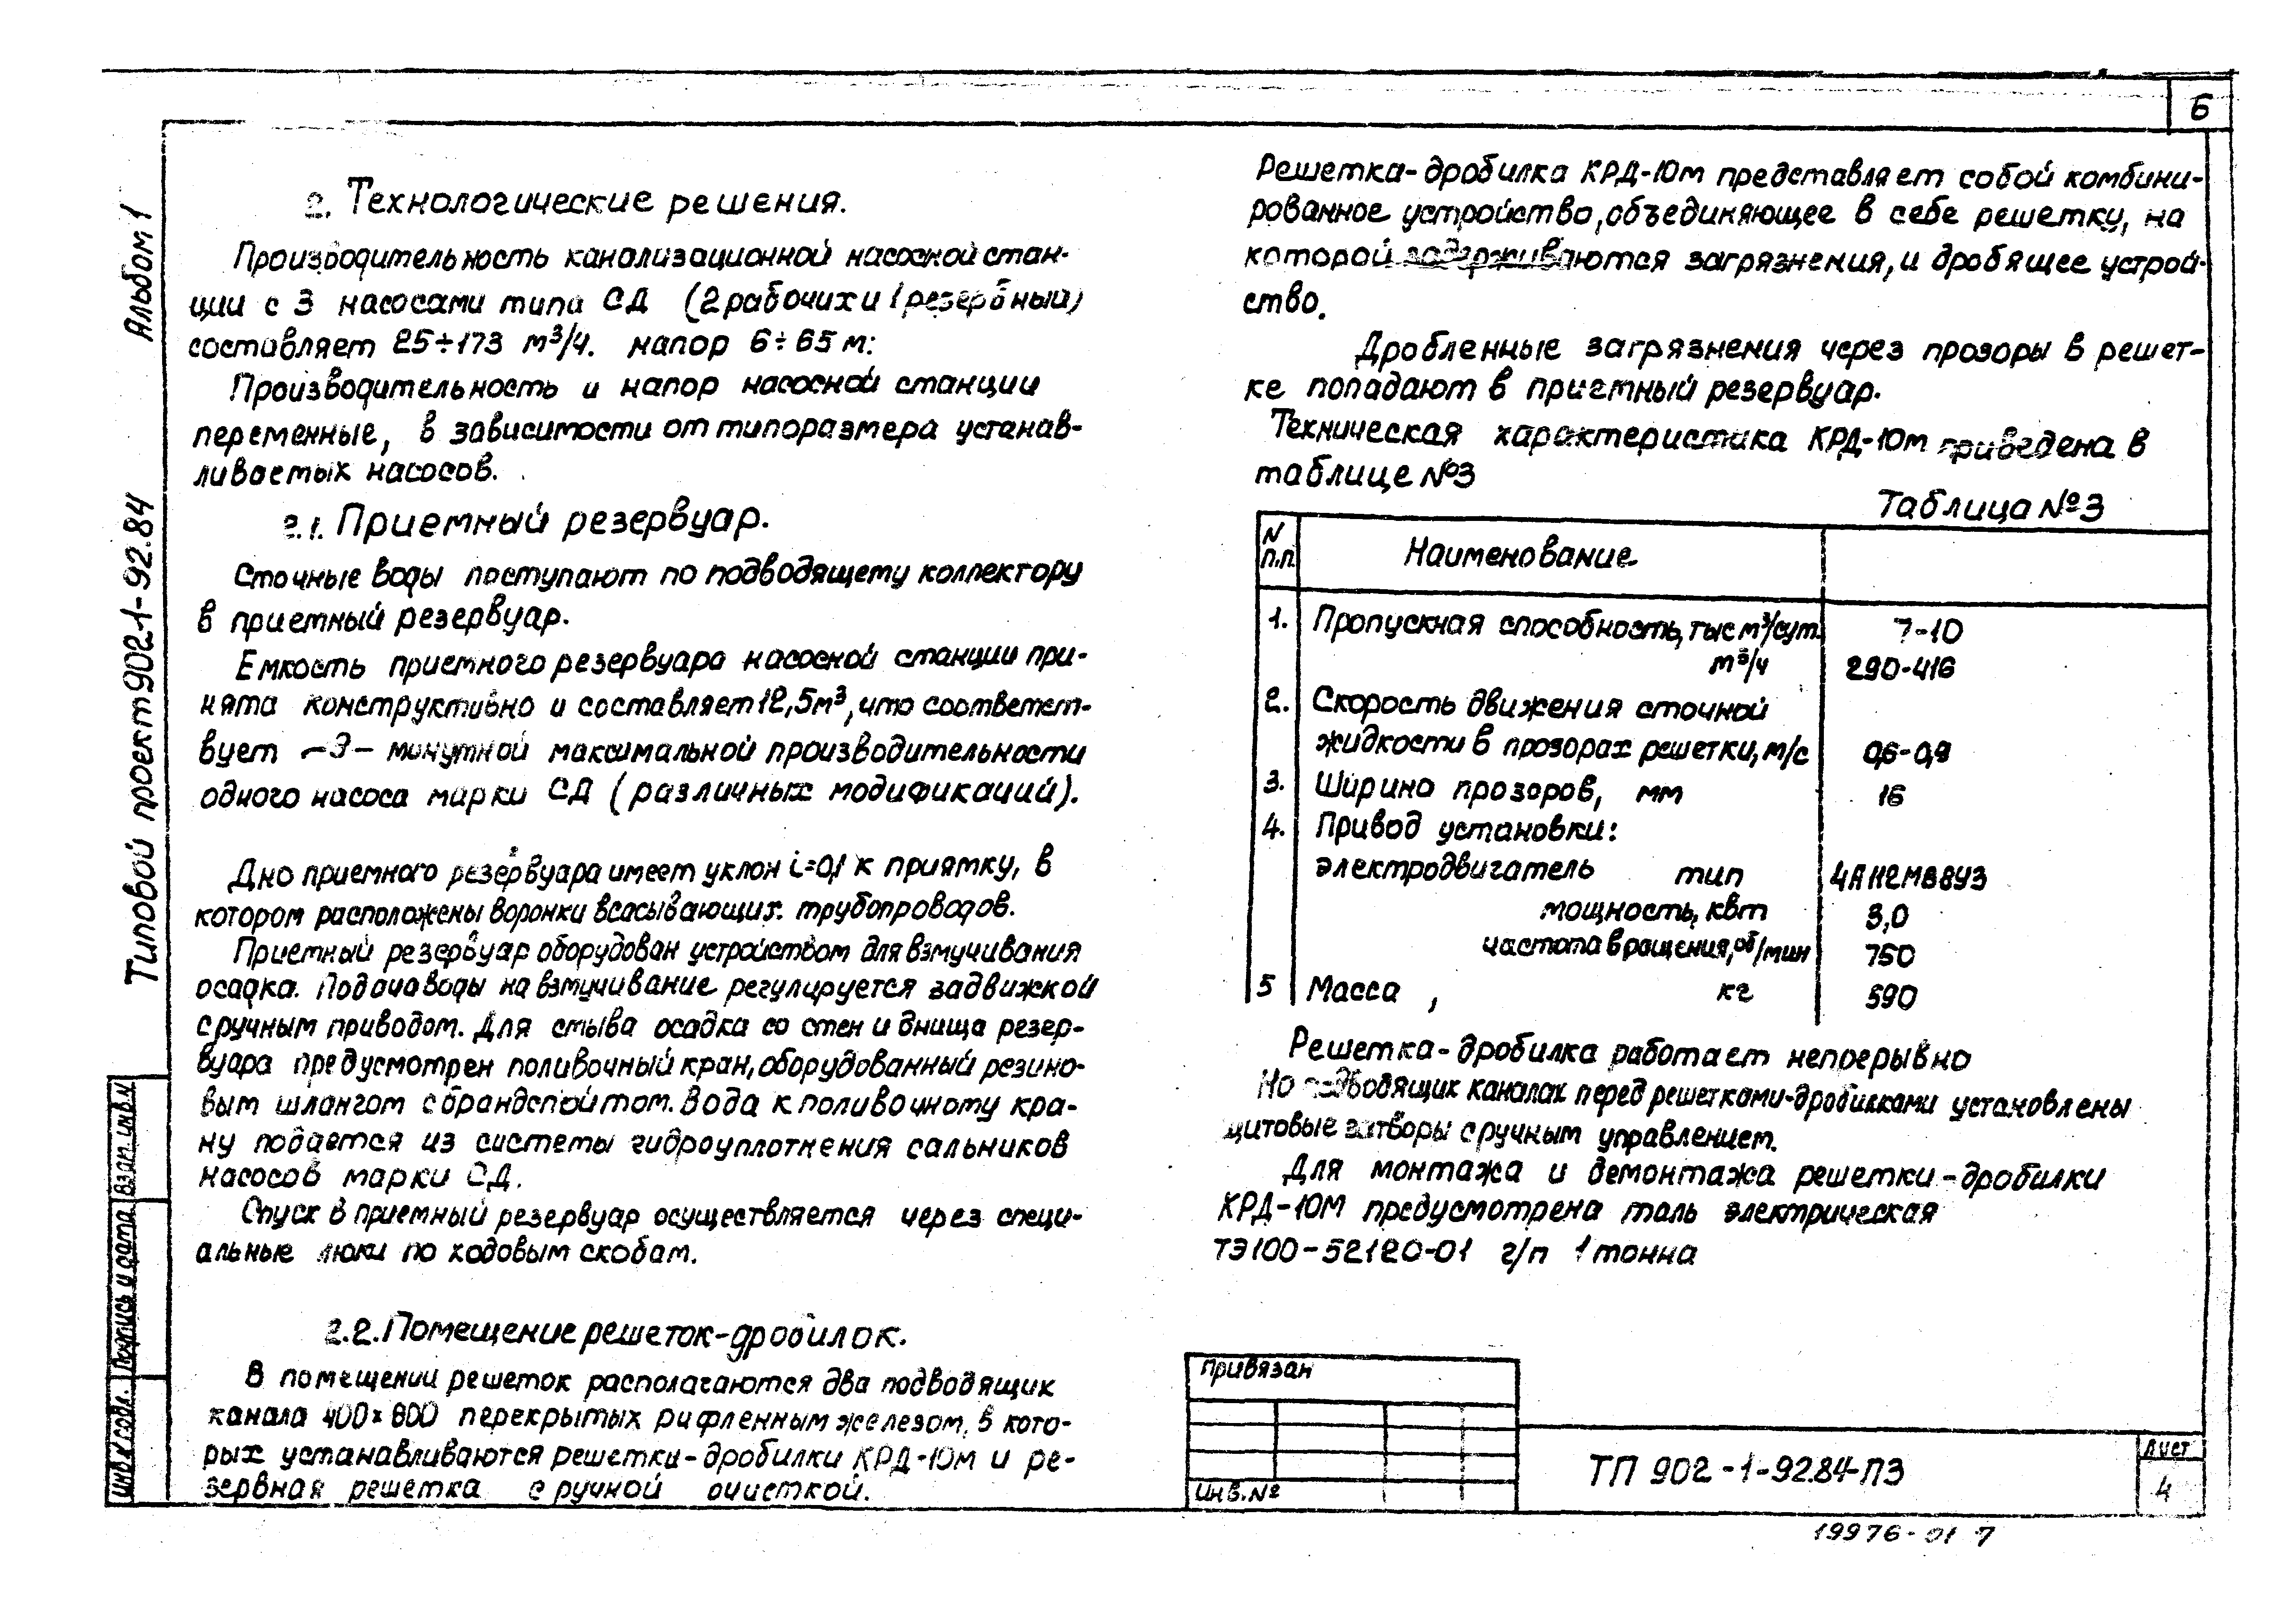 6
Альбом 1
Типовой проект 902-1-92.84
Взам. инв. N
Подпись и дата
2. Технологические решения.
Производительность канализационной насосной стан-
ции с 3 насосами типа СД (2 рабочих и 1 резервный)
составляет 25÷173 м³/ч. напор 6÷65 м.
Производительность и напор насосной станции
переменные, в зависимости от типоразмера устанав-
ливаемых насосов.
2.1. Приемный резервуар.
Сточные воды поступают по подводящему коллектору
в приемный резервуар.
Емкость приемного резервуара насосной станции при-
нята конструктивно и составляет 12,5м³, что соответст-
вует ~3- минутной максимальной производительности
одного насоса марки СД (различных модификаций).
Дно приемного резервуара имеет уклон i=0,1 к приятку, в
котором расположены воронки всасывающих трубопроводов.
Приемный резервуар оборудован устройством для взмучивания
осадка. Подача воды на взмучивание регулируется задвижкой
с ручным приводом. Для смыва осадка со стен и днища резер-
вуара предусмотрен поливочный кран, оборудованный резино-
вым шлангом с брандспойтом. Вода к поливочному кра-
ну подается из системы гидроуплотнения сальников
насосов марки СД.
Спуск в приемный резервуар осуществляется через специ-
альные люки по ходовым скобам.
2.2. Помещение решеток-дробилок.
В помещении решеток располагаются два подводящих
канала 400×800 перекрытых рифленным железом, в кото-
рых устанавливаются решетки-дробилки КРД-10м и ре-
зервная решетка с ручной очисткой.
Решетка-дробилка КРД-10м представляет собой комбини-
рованное устройство, объединяющее в себе решетку, на
которой задерживаются загрязнения, и дробящее устрой-
ство.
Дробленные загрязнения через прозоры в решет-
ке попадают в приемный резервуар.
Техническая характеристика КРД-10м приведена в
таблице №3
Таблица №3
N п.п. Наименование
1. Пропускная способность, тыс м³/сут. 7-10
м³/ч 290-416
2. Скорость движения сточной
жидкости в прозорах решетки, м/с 0,6-0,9
3. Ширина прозоров, мм 16
4. Привод установки:
электродвигатель тип 4А112МВ8У3
мощность, квт 3,0
частота вращения, об/мин 750
5 Масса , кг 590
Решетка-дробилка работает непрерывно
На подводящих каналах перед решетками-дробилками установлены
щитовые затворы с ручным управлением.
Для монтажа и демонтажа решетки-дробилки
КРД-10М предусмотрена таль электрическая
ТЭ100-52120-01 г/п 1 тонна
Привязан
Инв. №
ТП 902-1-92.84-ПЗ
Лист
4
19976-01 7